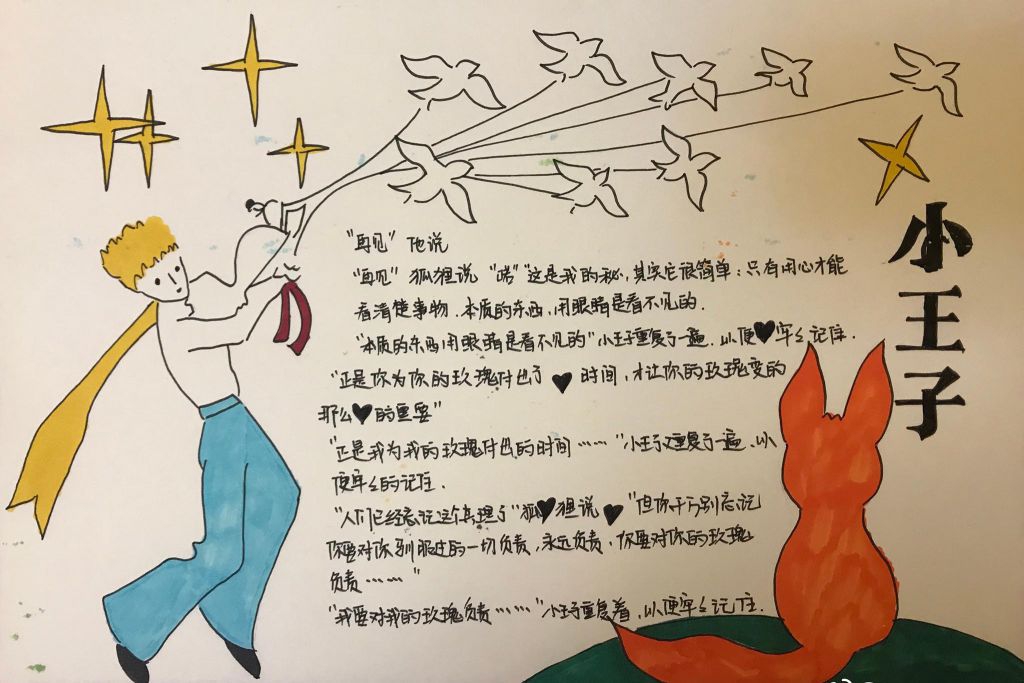 小王子
"再见" 他说
"再见" 狐狸说 "喏" "这是我的秘，其实它很简单：只有用心才能
看清楚事物．本质的东西，用眼睛是看不见的．
"本质的东西用眼睛是看不见的" 小王子重复了一遍．以便♥牢牢记住．
"正是你为你的玫瑰付出了 ♥ 时间，才让你的玫瑰变的
那么♥的重要"
"正是我为我的玫瑰付出的时间……" 小王子重复了一遍．以
便牢牢的记住．
"人们已经忘记这个真理了" 狐♥狸说 ♥ "但你千万别忘记
你要对你驯服过的一切负责，永远负责，你要对你的玫瑰
负责……"
"我要对我的玫瑰负责……" 小王子重复着，以便牢牢记住．